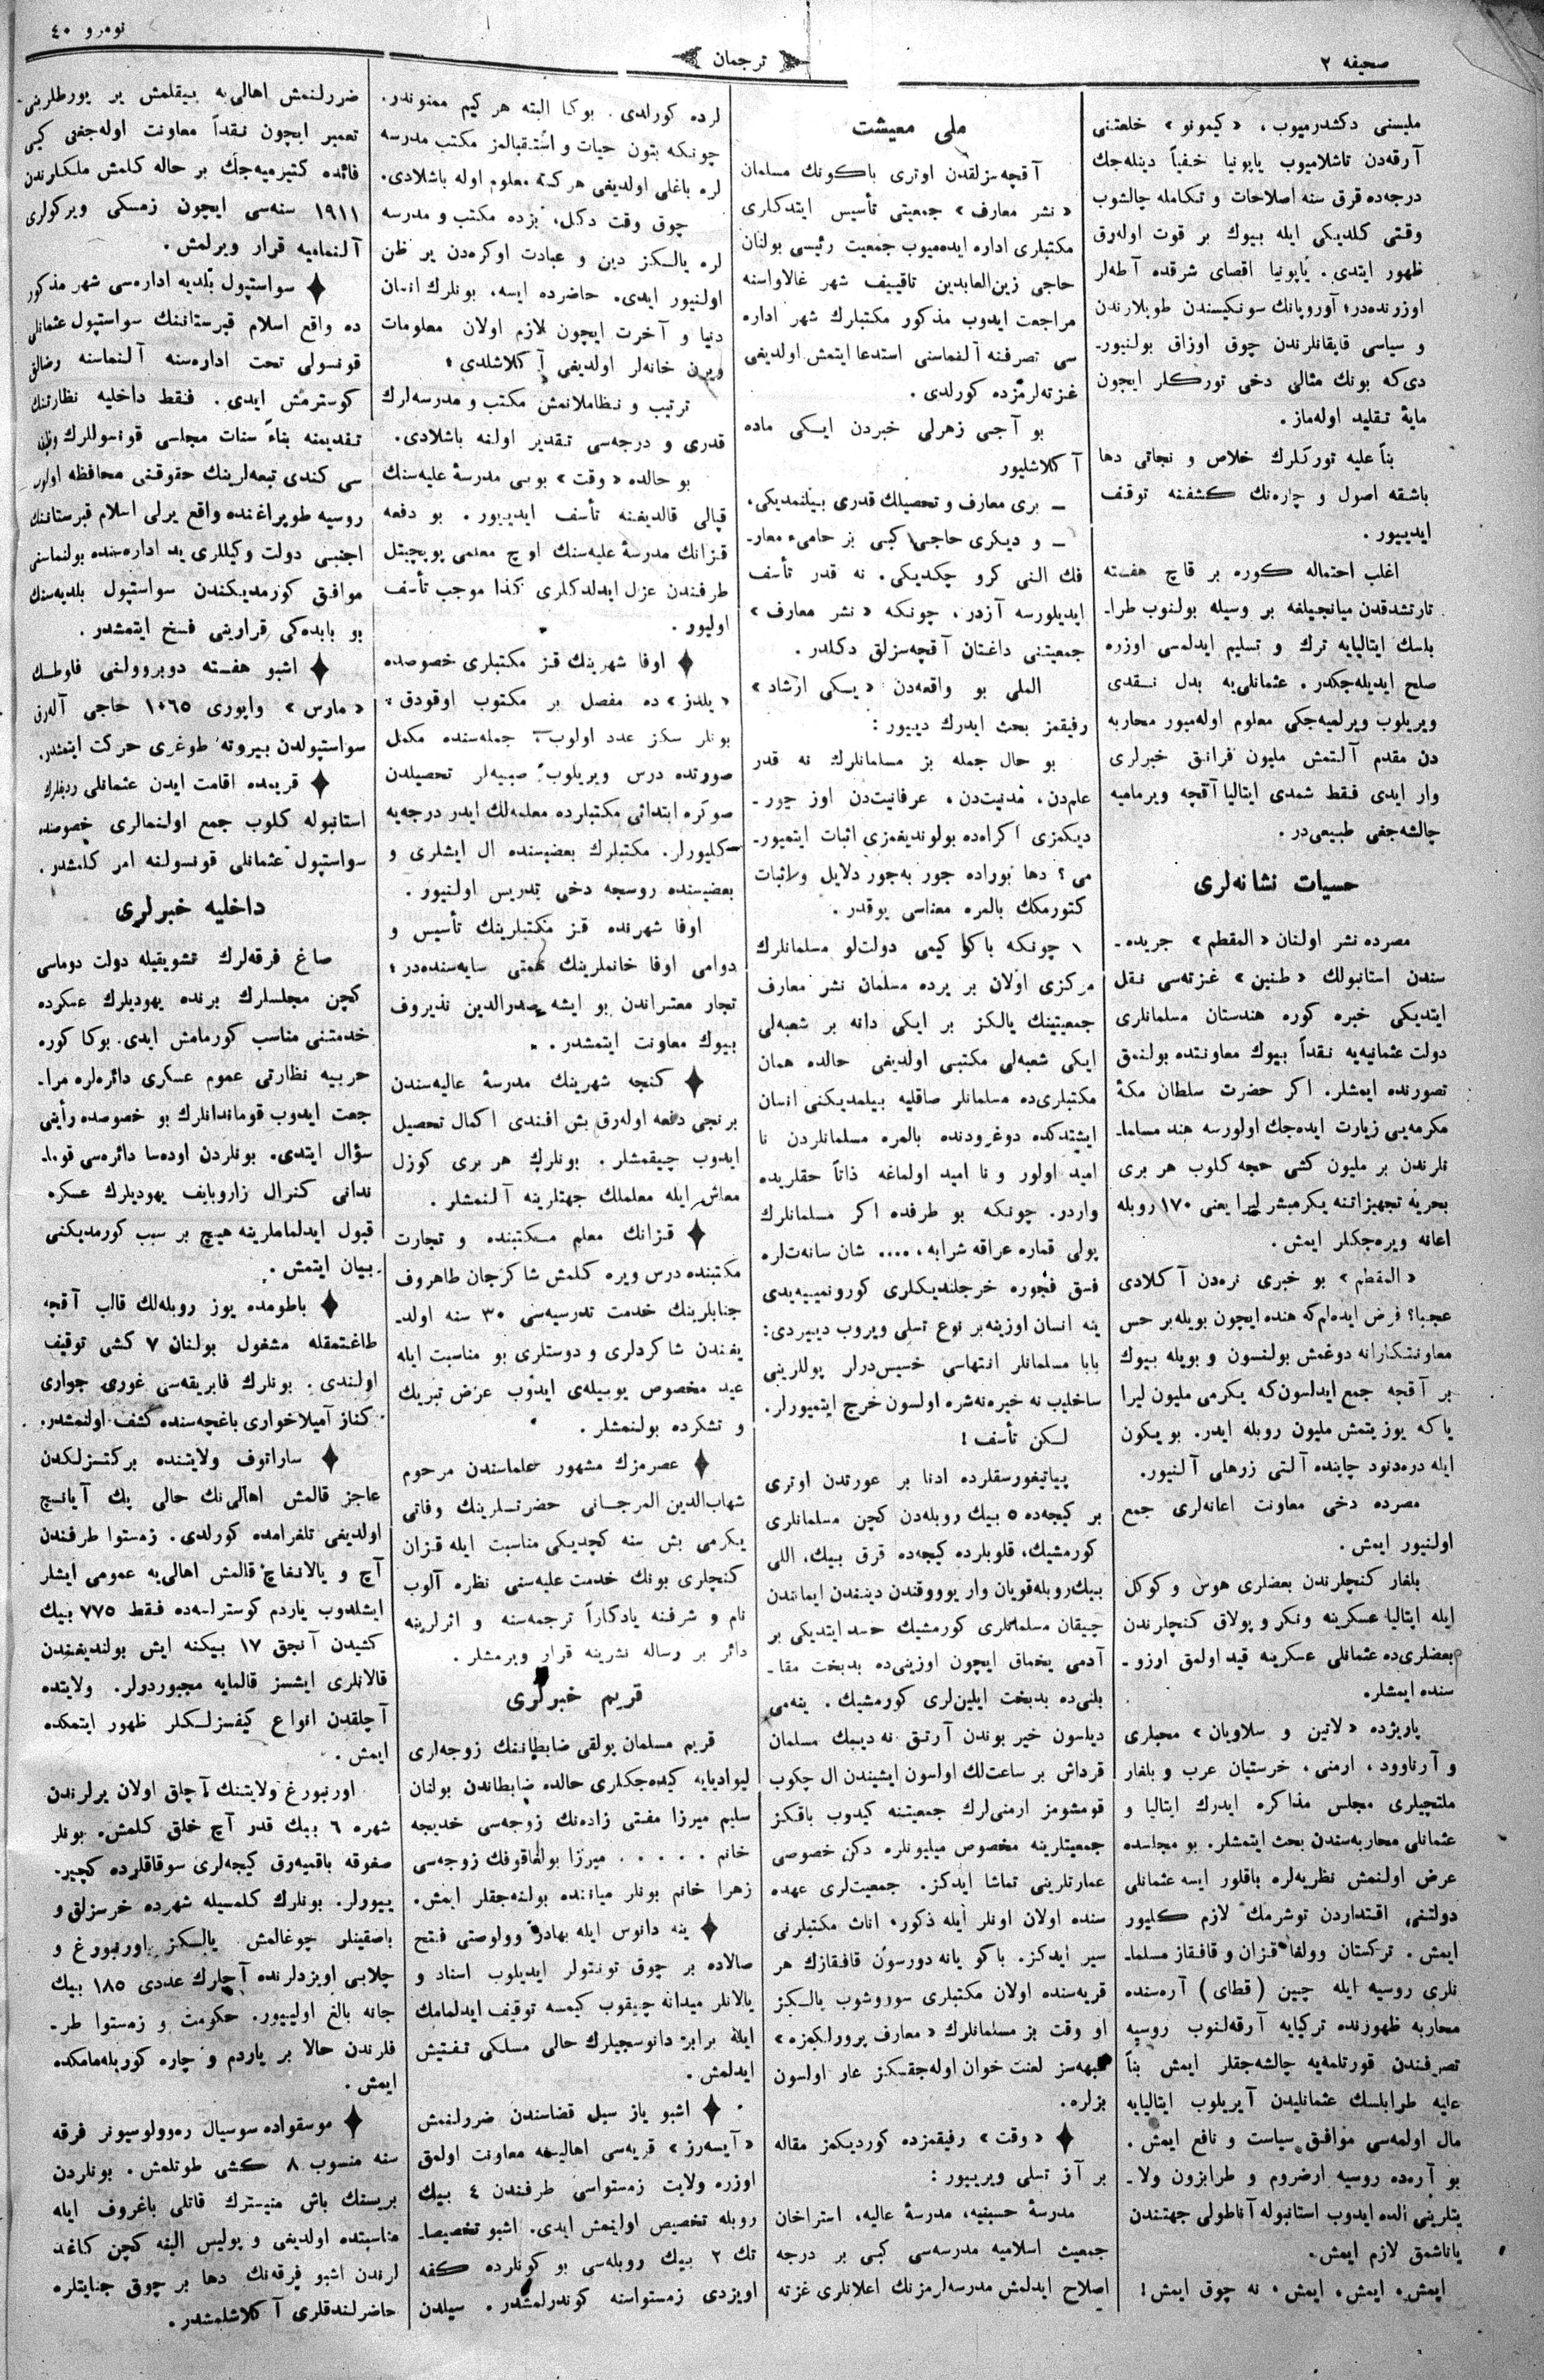 صحیفه ٢
ترجمان
نومرو ٤٠
ملیسنی دكشدرمیوب، «كیمونو» خلعتنی
آرقه‌دن تاشلامیوب یاپونیا خفیاً دینله‌جك
درجه‌ده قرق سنه اصلاحات و تكامله چالشوب
وقتی كلدیكی ایله بیوك بر قوت اوله‌رق
ظهور ایتدی. یاپونیا اقصای شرقده آطه‌لر
اوزرنده‌در؛ آوروپانك سونكیسندن طوپلارندن
و سیاسی قایقانلرندن چوق اوزاق بولنیور-
دی‌كه بونك مثالی دخی توركلر ایچون
مایهٔ تقلید اوله‌ماز.
بناً علیه توركلرك خلاص و نجاتی دها
باشقه اصول و چاره‌نك كشفنه توقف
ایدییور.
اغلب احتماله كوره بر قاچ هفسته
تارتشدقدن میانجیلغه بر وسیله بولنوب طرا-
بلسك ایتالیایه ترك و تسلیم ایدلمسی اوزره
صلح ایدیله‌جكدر. عثمانلی‌یه بدل نقدی
ویریلوب ویرلمیه‌جكی معلوم اوله‌میور محاربه
دن مقدم آلتمش ملیون فرانق خبرلری
وار ایدی فقط شمدی ایتالیا آقچه ویرمامیه
چالشه‌جغی طبیعی‌در.
حسیات نشانه‌لری
مصرده نشر اولنان «المقطم» جریده-
سندن استانبولك «طنین» غزته‌سی نقل
ایتدیكی خبره كوره هندستان مسلمانلری
دولت عثمانیه‌یه نقداً بیوك معاونتده بولنمق
تصورنده ایمشلر. اكر حضرت سلطان مكهٔ
مكرمه‌یی زیارت ایده‌جك اولورسه هند مسلما-
نلرندن بر ملیون كشی حجه كلوب هر بری
بحریه تجهیزاتنه یكرمیشر لیرا یعنی ١٧٠ روبله
اعانه ویره‌جكلر ایمش.
«المقطم» بو خبری نره‌دن آكلادی
عجبا؟ فرض ایده‌لم‌كه هنده ایچون بویله‌بر حس
معاونتكارانه دوغمش بولنسون و بویله بیوك
بر آقچه جمع ایدلسون‌كه یكرمی ملیون لیرا
یا كه یوز یتمش ملیون روبله ایدر. بو یكون
ایله دره‌دنود چابنده آلتی زرهلی آلنیور.
مصرده دخی معاونت اعانه‌لری جمع
اولنیور ایمش.
بلغار كنچلرندن بعضلری هوس و كوكل
ایله ایتالیا عسكرینه ونكر و پولاق كنچلرندن
بعضلری‌ده عثمانلی عسكرینه قید اولمق ارزو-
سنده ایمشلر.
پاریژده «لاتین و سلاویان» محبلری
و آرناوود، ارمنی، خرستیان عرب و بلغار
ملتجیلری مجلس مذاكره ایدرك ایتالیا و
عثمانلی محاربه‌سندن بحث ایتمشلر. بو مجلسده
عرض اولنمش نظریه‌لره باقلور ایسه عثمانلی
دولتنی اقتداردن توشرمك لازم كلیور
ایمش. تركستان وولغا قزان و قافقاز مسلما-
نلری روسیه ایله چین (قطای) آره‌سنده
محاربه ظهورنده تركیایه آرقه‌لنوب روسیه
تصرفندن قورتلمه‌یه چالشه‌جقلر ایمش بناً
علیه طرابلسك عثمانلیدن آیریلوب ایتالیایه
مال اولمه‌سی موافق سیاست و نافع ایمش.
بو آره‌ده روسیه ارضروم و طرابزون ولا-
یتلرینی الده ایدوب استانبوله آناطولی جهتندن
یاناشمق لازم ایمش.
ایمش، ایمش، ایمش، نه چوق ایمش!
ملی معیشت
آقچه‌سزلقدن اوتری باكونك مسلمان
«نشر معارف» جمعیتی تأسیس ایتدكلری
مكتبلری اداره ایده‌میوب جمعیت رئیسی بولنان
حاجی زین‌العابدین تاقییف شهر غالاواسنه
مراجعت ایدوب مذكور مكتبلرك شهر اداره
سی تصرفنه آلنماسنی استدعا ایتمش اولدیغی
غزته‌لرمزده كورلدی.
بو آجی زهرلی خبردن ایكی ماده
آكلاشلیور
ـ بری معارف و تحصیلك قدری بیلنمدیكی،
ـ و دیكری حاجی كبی بر حامیء معار-
فك النی كرو چكدیكی. نه قدر تأسف
ایدیلورسه آزدر، چونكه «نشر معارف»
جمعیتنی داغتان آقچه‌سزلق دكلدر.
الملی بو واقعه‌دن «یكی ارشاد»
رفیقمز بحث ایدرك دییور:
بو حال جمله بز مسلمانلرك نه قدر
علم‌دن، مدنیت‌دن، عرفانیت‌دن اوز چور-
دیكمزی اكراه‌ده بولوندیغمزی اثبات ایتمیور-
می؟ دها بوراده جور به‌جور دلایل و اثبات
كتورمكك بالمره معناسی یوقدر.
چونكه باكو كیمی دولت‌لو مسلمانلرك
مركزی اولان بر یرده مسلمان نشر معارف
جمعیتینك یالكز بر ایكی دانه بر شعبه‌لی
ایكی شعبه‌لی مكتبی اولدیغی حالده همان
مكتبلری‌ده مسلمانلر صاقلیه بیلمدیكنی انسان
ایشتدكده دوغرودنده بالمره مسلمانلردن نا
امید اولور و نا امید اولماغه ذاتاً حقلریده
واردر. چونكه بو طرفده اكر مسلمانلرك
پولی قماره عراقه شرابه، .... شان سانه‌ت‌لره
فسق فجوره خرجلندیكلری كورونمییه‌یدی
ینه انسان اوزینه‌بر نوع تسلی ویروب دییردی:
بابا مسلمانلر انتهاسی خسیس‌درلر پوللرینی
ساخلیب نه خیره‌نه‌شره اولسون خرج ایتمیورلر.
لكن تأسف!
پیاتیغورسقلرده ادنا بر عورتدن اوتری
بر كیجه‌ده ٥ بیك روبله‌دن كچن مسلمانلری
كورمشیك، قلوبلرده كیجه‌ده قرق بیك، اللی
بیك‌روبله‌قویان وار یوووقندن دینندن ایمانندن
چیقان مسلمانلری كورمشیك حسد ایتدیكی بر
آدمی یخماق ایچون اوزینی‌ده بدبخت مقا-
بلنی‌ده بدبخت ایلین‌لری كورمشیك. ینه‌می
دیلسون خیر بوندن آرتق نه دییبك مسلمان
قرداش بر ساعت‌لك اولسون ایشیندن ال چكوب
قومشومز ارمنی‌لرك جمعیتنه كیدوب باقكز
جمعیتلرینه مخصوص میلیونلره دكن خصوصی
عمارتلرینی تماشا ایدكز. جمعیت‌لری عهده
سنده اولان اونلر ایله ذكور، اناث مكتبلرنی
سیر ایدكز. باكو یانه دورسون قافقازك هر
قریه‌سنده اولان مكتبلری سوروشوب یالكز
او وقت بز مسلمانلرك «معارف پرورلكمزه»
شبهه‌سز لعنت خوان اوله‌جقسكز عار اولسون
بزلره.
«وقت» رفیقمزده كوردیكمز مقاله
بر آز تسلی ویرییور:
مدرسهٔ حسینیه، مدرسهٔ عالیه، استراخان
جمعیت اسلامیه مدرسه‌سی كبی بر درجه
اصلاح ایدلمش مدرسه‌لرمزنك اعلانلری غزته
لرده كورلدی. بوكا البته هر كیم ممنوندر.
چونكه بتون حیات و استقبالمز مكتب مدرسه
لره باغلی اولدیغی هركسه معلوم اوله باشلادی.
چوق وقت دكل، بزده مكتب و مدرسه
لره یالكز دین و عبادت اوكره‌دن یر ظن
اولنیور ایدی. حاضرده ایسه، بونلرك انسان
دنیا و آخرت ایچون لازم اولان معلومات
ویرن خانه‌لر اولدیغی آكلاشلدی؛
ترتیب و نظاملانمش مكتب و مدرسه‌لرك
قدری و درجه‌سی تقدیر اولنه باشلادی.
بو حالده «وقت» بوبی مدرسهٔ علیه‌سنك
قپالی قالدیغنه تأسف ایدییور. بو دفعه
قزانك مدرسهٔ علیه‌سنك اوچ معلمی پوپچیتل
طرفندن عزل ایدلدكلری كذا موجب تأسف
اولیور.
اوفا شهرینك قز مكتبلری خصوصده
«یلدز» ده مفصل بر مكتوب اوقودق؛
بونلر سكز عدد اولوب، جمله‌سنده مكمل
صورتده درس ویریلوب، صبیه‌لر تحصیلدن
صوكره ابتدائی مكتبلرده معلمه‌لك ایدر درجه‌یه
كلیورلر. مكتبلرك بعضیسنده ال ایشلری و
بعضیسنده روسجه دخی تدریس اولنیور.
اوفا شهرنده قز مكتبلرینك تأسیس و
دوامی اوفا خانملرینك همتی سایه‌سنده‌در؛
تجار معتبراندن بو ایشه صدرالدین نذیروف
بیوك معاونت ایتمشدر.
كنجه شهرینك مدرسهٔ عالیه‌سندن
برنجی دفعه اوله‌رق بش افندی اكمال تحصیل
ایدوب چیقمشلر. بونلرك هر بری كوزل
معاش ایله معلملك جهتلرینه آلنمشلر.
قزانك معلم مكتبنده و تجارت
مكتبنده درس ویره كلمش شاكرجان طاهروف
جنابلرینك خدمت تدرسیه‌سی ٣٠ سنه اولد-
یغندن شاكردلری و دوستلری بو مناسبت ایله
عید مخصوص یوبیله‌ی ایدوب عرض تبریك
و تشكرده بولنمشلر.
عصرمزك مشهور علماسندن مرحوم
شهاب‌الدین المرجانی حضرتلرینك وفاتی
یكرمی بش سنه كچدیكی مناسبت ایله قزان
كنچلری بونك خدمت علیه‌سنی نظره آلوب
نام و شرفنه یادكاراً ترجمه‌سنه و اثرلرینه
دائر بر رساله نشرینه قرار ویرمشلر.
قریم خبرلری
قریم مسلمان پولقی ضابطاننك زوجه‌لری
لیوادیایه كیده‌جكلری حالده ضابطاندن بولنان
سلیم میرزا مفتی زاده‌نك زوجه‌سی خدیجه
خانم . . . . . میرزا بولغاقوفك زوجه‌سی
زهرا خانم بونلر میاننده بولنه‌جقلر ایمش.
ینه دانوس ایله بهادر وولوصتی فتح
صالاده بر چوق تونتولر ایدیلوب اسناد و
یالانلر میدانه چیقوب كیمسه توقیف ایدلمامك
ایله برابر دانوسجیلرك حالی مسلكی تفتیش
ایدلمش.
اشبو یاز سیل قضاسندن ضررلنمش
«آیسه‌رز» قریه‌سی اهالیسنه معاونت اولمق
اوزره ولایت زمستواسی طرفندن ٤ بیك
روبله تخصیص اولنمش ایدی. اشبو تخصیصا-
تك ٢ بیك روبله‌سی بو كونلرده كفه
اویزدی زمستواسنه كوندرلمشدر. سیلدن
ضررلنمش اهالی‌یه بیقلمش یر یورطلرینی
تعمیر ایچون نقداً معاونت اوله‌جغی كبی
فائده كتیرمیه‌جك بر حاله كلمش ملكلرندن
١٩١١ سنه‌سی ایچون زمسكی ویركولری
آلنمامیه قرار ویرلمش.
سواستپول بلدیه اداره‌سی شهر مذكور
ده واقع اسلام قبرستاننك سواستپول عثمانلی
قونسولی تحت اداره‌سنه آلنماسنه رضالق
كوسترمش ایدی. فقط داخلیه نظارتنك
تقدیمنه بناءً سنات مجلسی قونسوللرك وظیفه
سی كندی تبعه‌لرینك حقوقنی محافظه اولوب
روسیه طوپراغنده واقع یرلی اسلام قبرستاننك
اجنبی دولت وكیللری ید اداره‌سنده بولنماسنی
موافق كورمدیكندن سواستپول بلدیه‌سنك
بو بابده‌كی قرارینی فسخ ایتمشدر.
اشبو هفسته دوبروولنی فلوطك
«مارس» واپوری ١٠٦٥ حاجی آله‌رق
سواستپولدن بیروته طوغری حركت ایتمشدر.
قریمده اقامت ایدن عثمانلی ردیفلرك
استانبوله كلوب جمع اولنمالری خصوصنده
سواستپول عثمانلی قونسولنه امر كلمشدر.
داخلیه خبرلری
صاغ فرقه‌لرك تشویقیله دولت دوماسی
كچن مجلسلرك برنده یهودیلرك عسكرده
خدمتنی مناسب كورمامش ایدی. بوكا كوره
حربیه نظارتی عموم عسكری دائره‌لره مرا-
جعت ایدوب قوماندانلرك بو خصوصده رأینی
سؤال ایتدی. بونلردن اوده‌سا دائره‌سی قوما-
ندانی كنرال زاروبایف یهودیلرك عسكره
قبول ایدلماملرینه هیچ بر سبب كورمدیكنی
بیان ایتمش.
باطومده یوز روبله‌لك قالب آقچه
طاغتمقله مشغول بولنان ٧ كشی توقیف
اولندی. بونلرك فابریقه‌سی غوری جواری
كناز آمیلاخواری باغچه‌سنده كشف اولنمشدر.
ساراتوف ولایتنده بركتسزلكدن
عاجز قالمش اهالی‌نك حالی پك آیانج
اولدیغی تلغرامده كورلدی. زمستوا طرفندن
آچ و یالانغاچ قالمش اهالی‌یه عمومی ایشلر
ایشلدوب یاردم كوسترلسه‌ده فقط ٧٧٥ بیك
كشیدن آنجق ١٧ بیكنه ایش بولندیغندن
قالانلری ایشسز قالمایه مجبوردرلر. ولایتده
آچلقدن انواع كیفسزلكلر ظهور ایتمكده
ایمش.
اورنبورغ ولایتنك آچلق اولان یرلرندن
شهره ٦ بیك قدر آچ خلق كلمش. بونلر
صغوقه باقمیه‌رق كیجه‌لری سوقاقلرده كچیر-
ییورلر. بونلرك كلمسیله شهرده خرسزلق و
باصقینلر چوغالمش. یالكز اورنبورغ و
چلابی اویزدلرنده آچلرك عددی ١٨٥ بیك
جانه بالغ اولییور. حكومت و زمستوا طر-
فلرندن حالا بر یاردم و چاره كوریله‌مامكده
ایمش.
موسقواده سوسیال ره‌وولوسیونر فرقه
سنه منسوب ٨ كشی طوتلمش. بونلردن
بریسنك باش منیسترك قاتلی باغروف ایله
مناسبتده اولدیغی و پولیس الینه كچن كاغد
لرندن اشبو فرقه‌نك دها بر چوق جنایتلره
حاضرلندقلری آكلاشلمشدر.